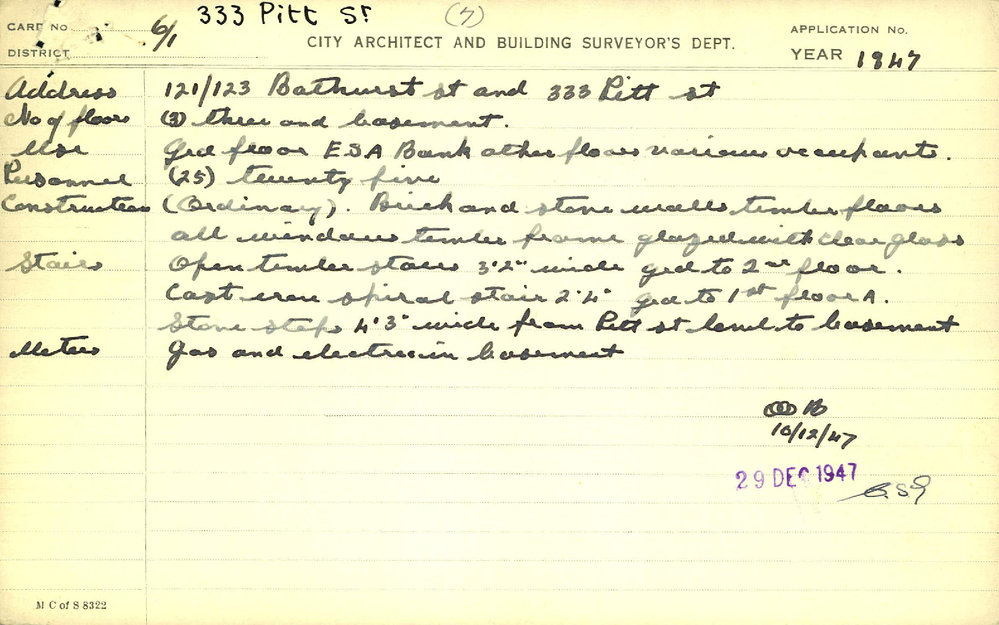 333 Pitt St (7)
CARD No 6/1
CITY ARCHITECT AND BUILDING SURVEYOR'S DEPT.
APPLICATION No.
DISTRICT
YEAR 1947
Address 121/123 Bathurst st and 333 Pitt st
No of floors (3) three and basement.
Use Grd floor E S A Bank other floors various occupants.
Personnel (25) twenty five
Construction (Ordinary). Brick and stone walls timber floors
all windows timber frame glazed with clear glass
Stairs Open timber stairs 3'2" wide grd to 2nd floor.
Cast iron spiral stair 2'4" grd to 1st floor A.
Stone steps 4'3" wide from Pitt st level to basement
Meters Gas and electric in basement
10/12/47
29 DEC 1947
M C of S 8322